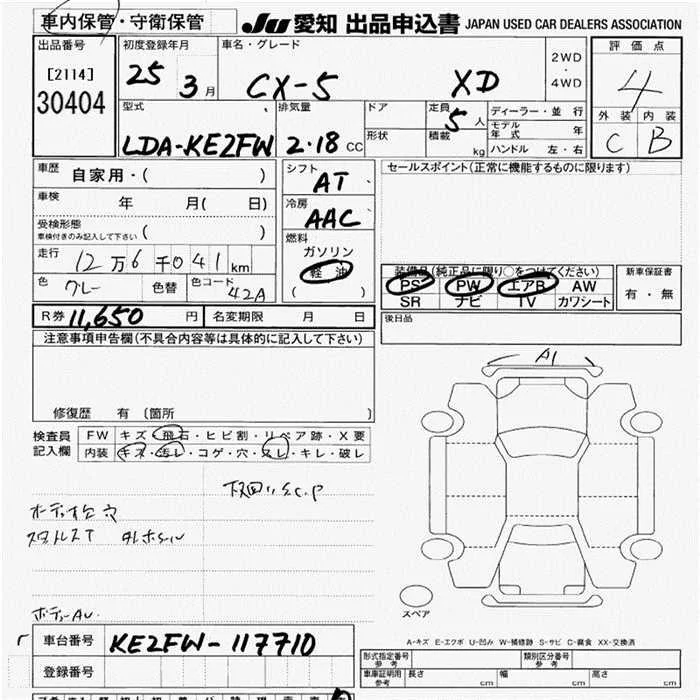 車内保管・守衛保管
JU 愛知 出品申込書 JAPAN USED CAR DEALERS ASSOCIATION
出品番号
[2114]
30404
初度登録年月
25 3 月
車名・グレード
CX-5 XD
2WD
・
4WD
評価点
4
外装 内装
C B
型式
LDA-KE2FW
排気量
2.18 CC
ドア
形状
定員
5 人
積載 kg
ディーラー・並行
モデル年式 年
ハンドル 左・右
車歴
自家用・( )
車検
年 月( 日)
受検形態
車検付きのみ記入して下さい ( )
走行
12万6千041km
色
グレー
色替
色コード
42A
シフト
AT
冷房
AAC
燃料
ガソリン
軽油
( )
セールスポイント(正常に機能するものに限ります)
装備品(純正品に限り○をつけてください)
PS PW エアB AW
SR ナビ TV カワシート
新車保証書
有・無
R券 11,650 円
名変期限 月 日
後日品
注意事項申告欄(不具合内容等は具体的に記入して下さい)
修復歴 有〔箇所 〕
検査員
記入欄
FW キズ・飛石・ヒビ割・リペア跡・X要
内装 キズ・汚レ・コゲ・穴・スレ・キレ・破レ
A1
下回りS.C.P
スペア
車台番号 KE2FW-117710
登録番号
A-キズ E-エクボ U-凹み W-補修跡 S-サビ C-腐食 XX-交換済
形式指定番号
参考
類別区分番号
参考
車庫証明用
参考
長さ cm
幅 cm
高さ cm